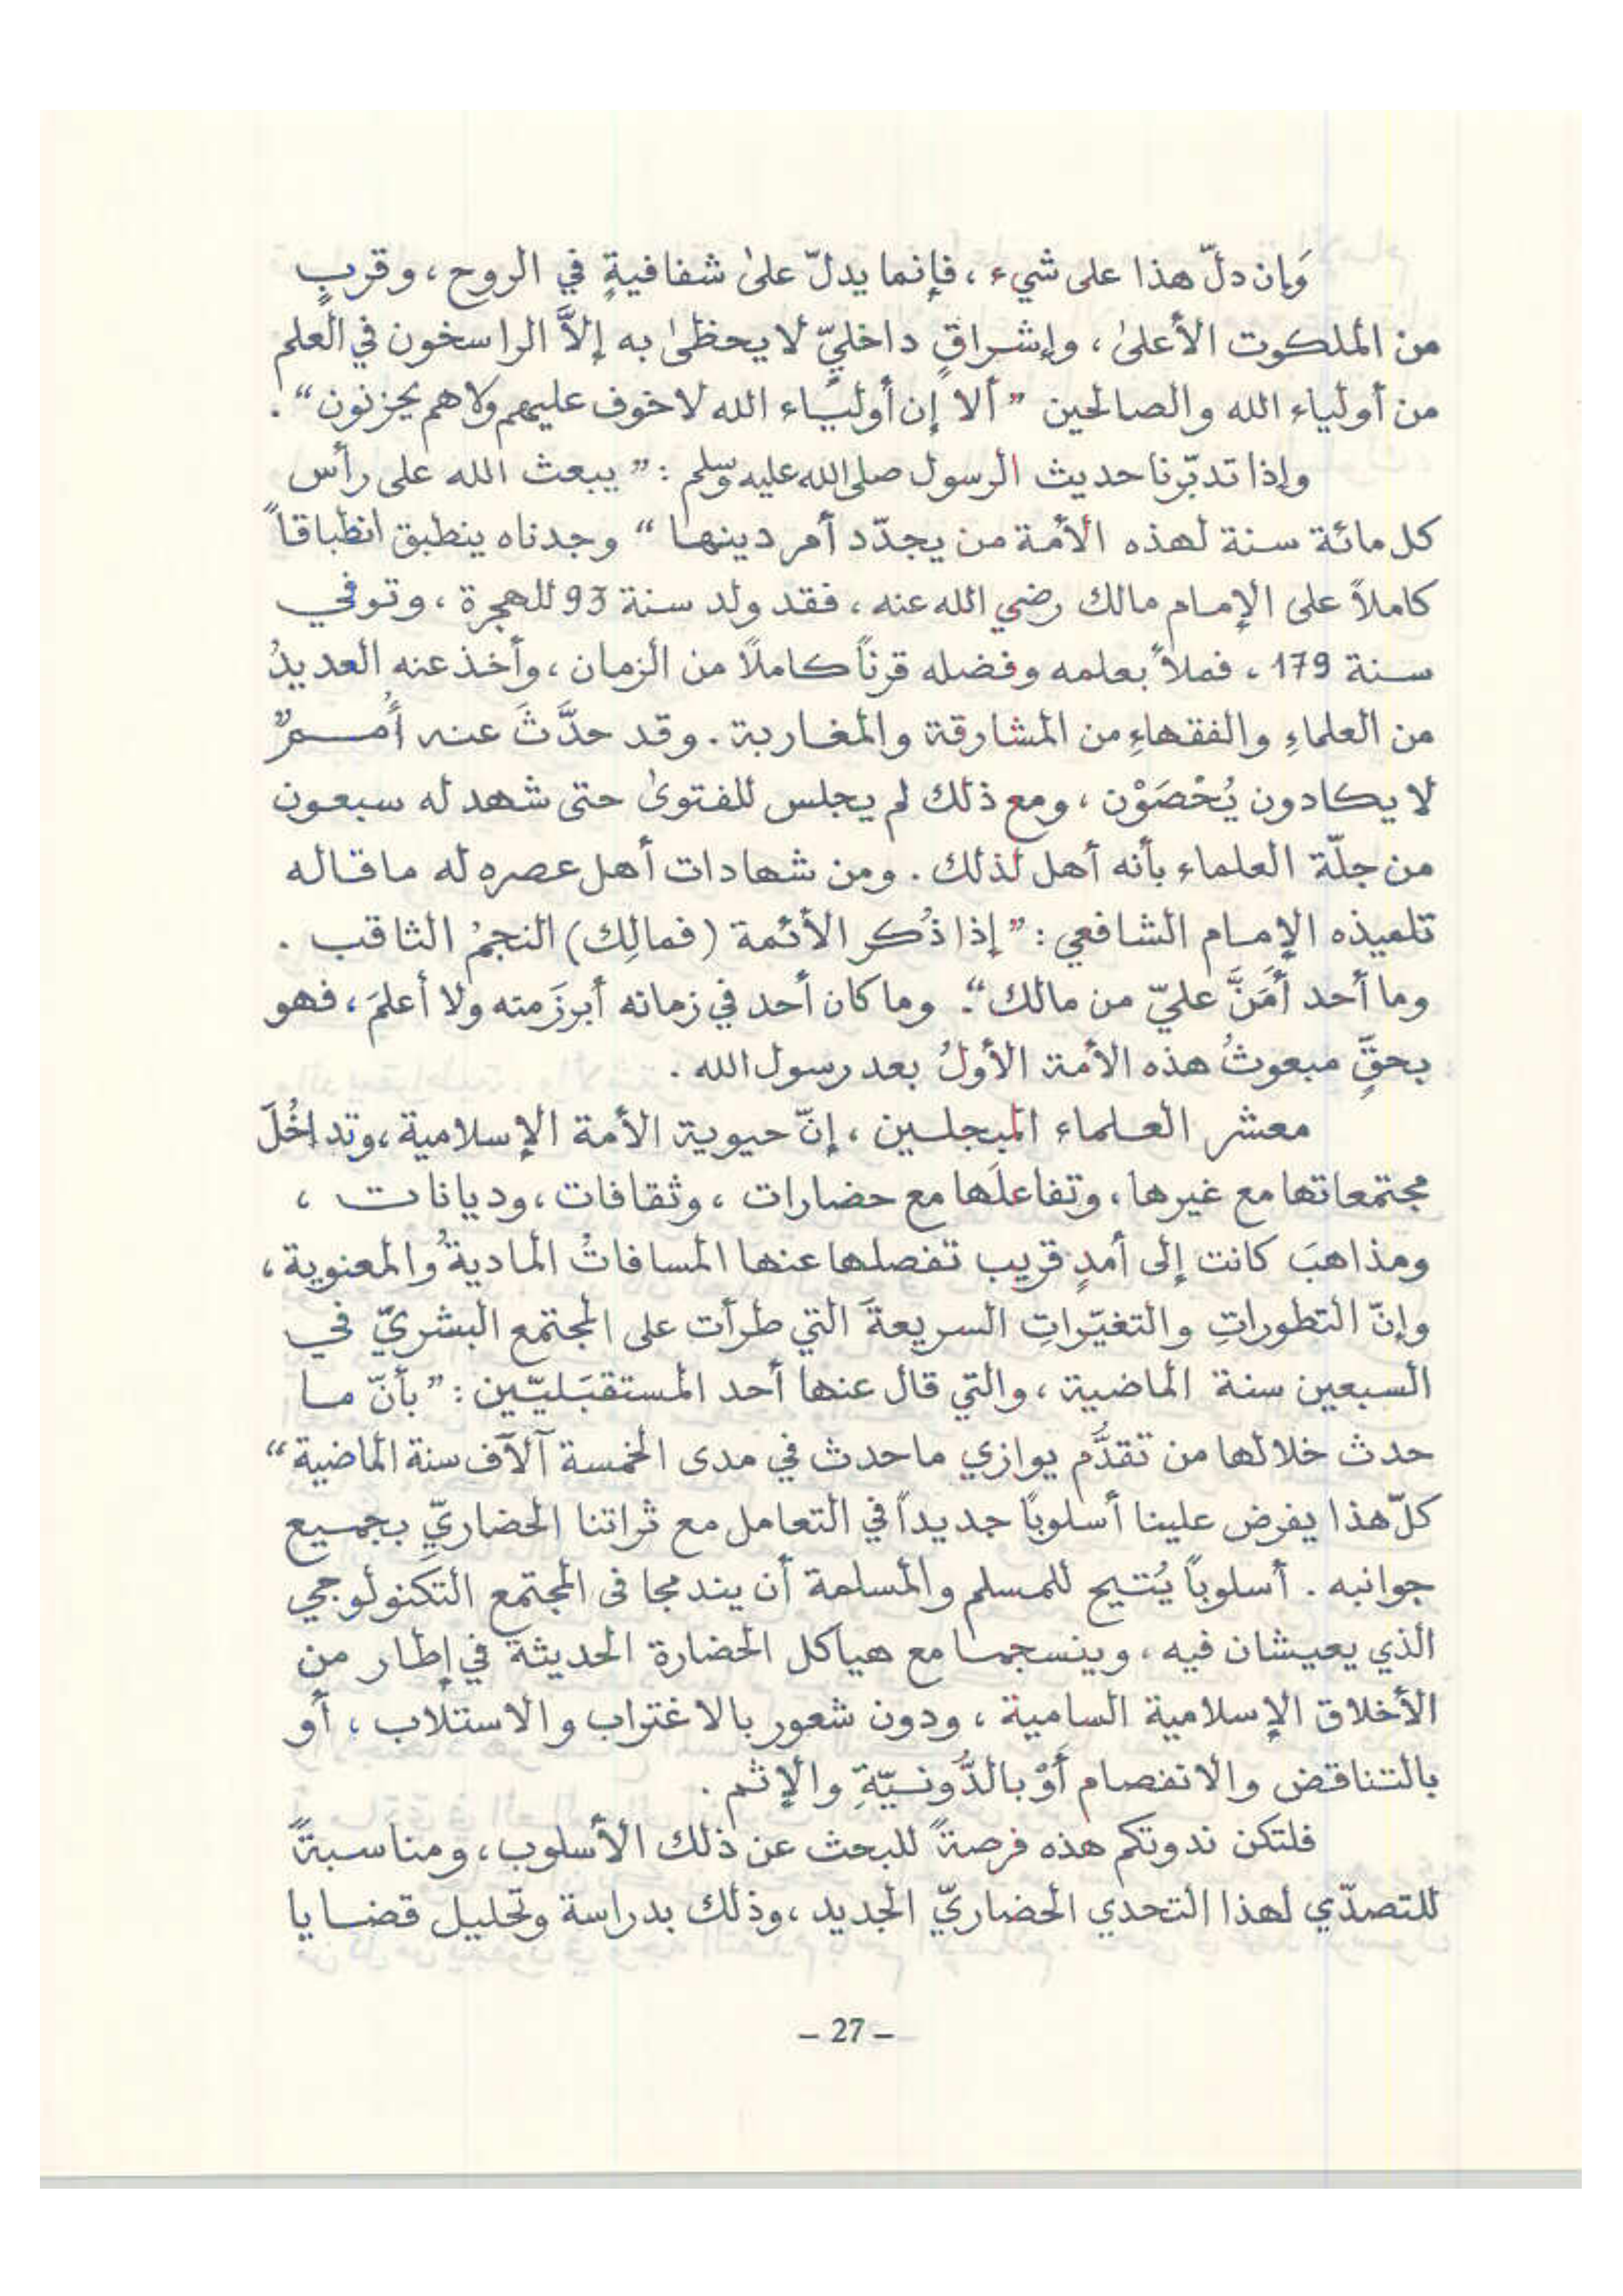 وَإن دلّ هذا على شيء ، فإنما يدلّ علىٰ شفافيةٍ في الروح ، وقربٍ
من الملكوت الأعلىٰ ، وإشراقٍ داخليّ لا يحظىٰ به إلاَّ الراسخون في العلم
من أولياء الله والصالحين ” ألا إن أوليَاء الله لا خوف عليهم ولا هم يحزنون “ .
وإذا تدبّرنا حديث الرسول صلى الله عليه وسلم : ” يبعث الله على رأس
كل مائة سنة لهذه الأمّة من يجدّد أمر دينها “ وجدناه ينطبق انطباقاً
كاملاً على الإمام مالك رضي الله عنه ، فقد ولد سنة 93 للهجرة ، وتوفي
سنة 179 ، فملأ بعلمه وفضله قرناً كاملاً من الزمان ، وأخذ عنه العديدُ
من العلماءِ والفقهاءِ من المشارقة والمغاربة . وقد حدَّثَ عنه أُممٌ
لا يكادون يُحْصَوْن ، ومع ذلك لم يجلس للفتوىٰ حتى شهد له سبعون
من جلّة العلماء بأنه أهل لذلك . ومن شهادات أهل عصره له ما قاله
تلميذه الإمام الشافعي : ” إذا ذُكر الأئمة (فمالِك) النجمُ الثاقب .
وما أحد أمَنَّ عليّ من مالك “. وما كان أحد في زمانه أبرزَ منه ولا أعلمَ ، فهو
بحقٍّ مبعوثُ هذه الأمة الأولُ بعد رسول الله .
معشر العلماء المبجلين ، إنّ حيوية الأمة الإسلامية ، وتداخُلَ
مجتمعاتها مع غيرها ، وتفاعلَها مع حضارات ، وثقافات ، وديانات ،
ومذاهبَ كانت إلى أمدٍ قريب تفصلها عنها المسافاتُ الماديةُ والمعنوية ،
وإنّ التطوراتِ والتغيّراتِ السريعةَ التي طرأت على المجتمع البشريّ في
السبعين سنة الماضية ، والتي قال عنها أحد المستقبَليّين : ” بأنّ ما
حدث خلالها من تقدُّم يوازي ما حدث في مدى الخمسة آلآف سنة الماضية “
كلّ هذا يفرض علينا أسلوبًا جديداً في التعامل مع ثراتنا الحضاريّ بجميع
جوانبه . أسلوباً يُتيح للمسلم والمسلمة أن يندمجا فى المجتمع التكَنولوجي
الذي يعيشان فيه ، وينسجما مع هياكل الحضارة الحديثة في إطار من
الأخلاق الإسلامية السامية ، ودون شعور بالاغتراب والاستلاب ، أو
بالتناقض والانفصام أَوْ بالدُّونيّةِ والإثم .
فلتكن ندوتكم هذه فرصةً للبحث عن ذلك الأسلوب ، ومناسبةً
للتصدّي لهذا التحدي الحضاريّ الجديد ، وذلك بدراسة وتحليل قضايا
– 27 –